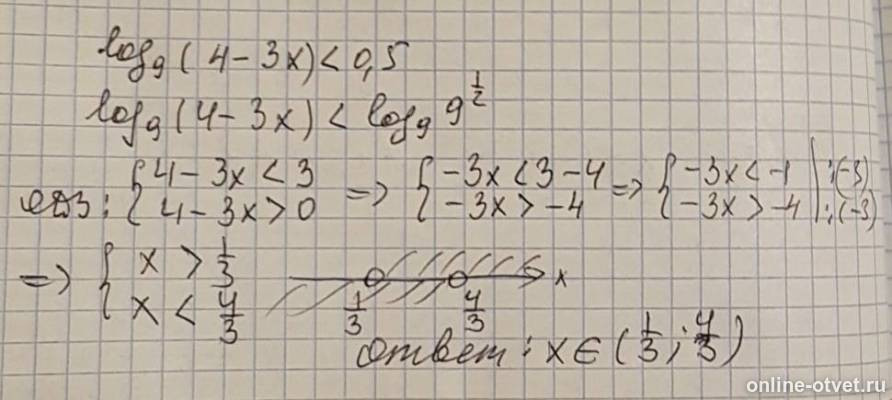 log₉(4-3x)<0,5
log₉(4-3x)<log₉9^{1/2}
одз: { 4-3x<3 ; 4-3x>0 => { -3x<3-4 ; -3x>-4 => { -3x<-1 | :(-3) ; -3x>-4 | :(-3)
=> { x > 1/3 ; x < 4/3
1/3 4/3 x
Ответ: x∈(1/3; 4/3)
online-otvet.ru